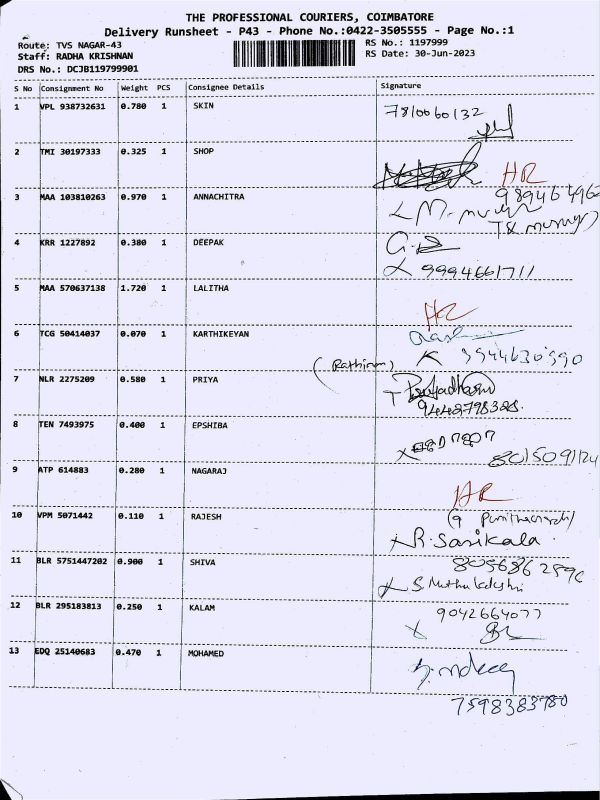 THE PROFESSIONAL COURIERS, COIMBATORE
Delivery Runsheet - P43 - Phone No.:0422-3505555 - Page No.:1
Route: TVS NAGAR-43 RS No.: 1197999
Staff: RADHA KRISHNAN RS Date: 30-Jun-2023
DRS No.: DCJB119799901
S No Consignment No Weight PCS Consignee Details Signature
1 VPL 938732631 0.780 1 SKIN 7810060132
2 TMI 30197333 0.325 1 SHOP
HR
3 MAA 103810263 0.970 1 ANNACHITRA
4 KRR 1227892 0.380 1 DEEPAK
9994661711
5 MAA 570637138 1.720 1 LALITHA
HR
6 TCG 50414037 0.070 1 KARTHIKEYAN
7 NLR 2275209 0.580 1 PRIYA
8 TEN 7493975 0.400 1 EPSHIBA
9 ATP 614883 0.280 1 NAGARAJ
HR
10 VPM 5071442 0.110 1 RAJESH
R. Sasikala
11 BLR 5751447202 0.900 1 SHIVA
12 BLR 295183813 0.250 1 KALAM 9042664077
13 EDQ 25140683 0.470 1 MOHAMED
7598383780